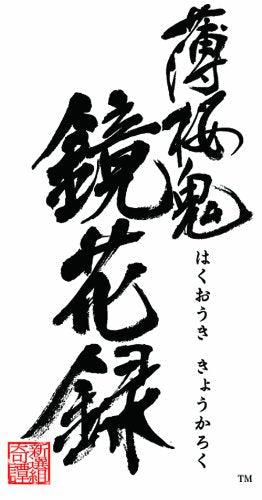 薄桜鬼
鏡花録
はくおうき きょうかろく
新選組
奇譚
TM